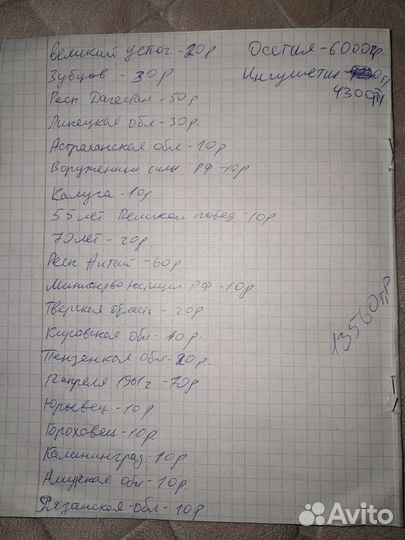 Великий устюг - 20р
Зубцов - 30р
Респ Дагестан - 50р
Липецкая обл - 30р.
Астраханская обл - 10р
Воружённые силы РФ - 10р
Калуга - 10р
55 лет Великой побед - 10р
70 лет - 20р
Респ Алтай - 60р
Министерство юстиции РФ - 10р
Тверская область - 20р
Кировская обл - 10р.
Пензенкая обл - 20р.
12 апреля 1961г - 70р
Юрьевец - 10р
Гороховец - 10р
Калининград - 10р
Амурская обл - 10р
Рязанская обл - 10р
Осетия - 6000р
Ингушетия
4300
13560
Avito